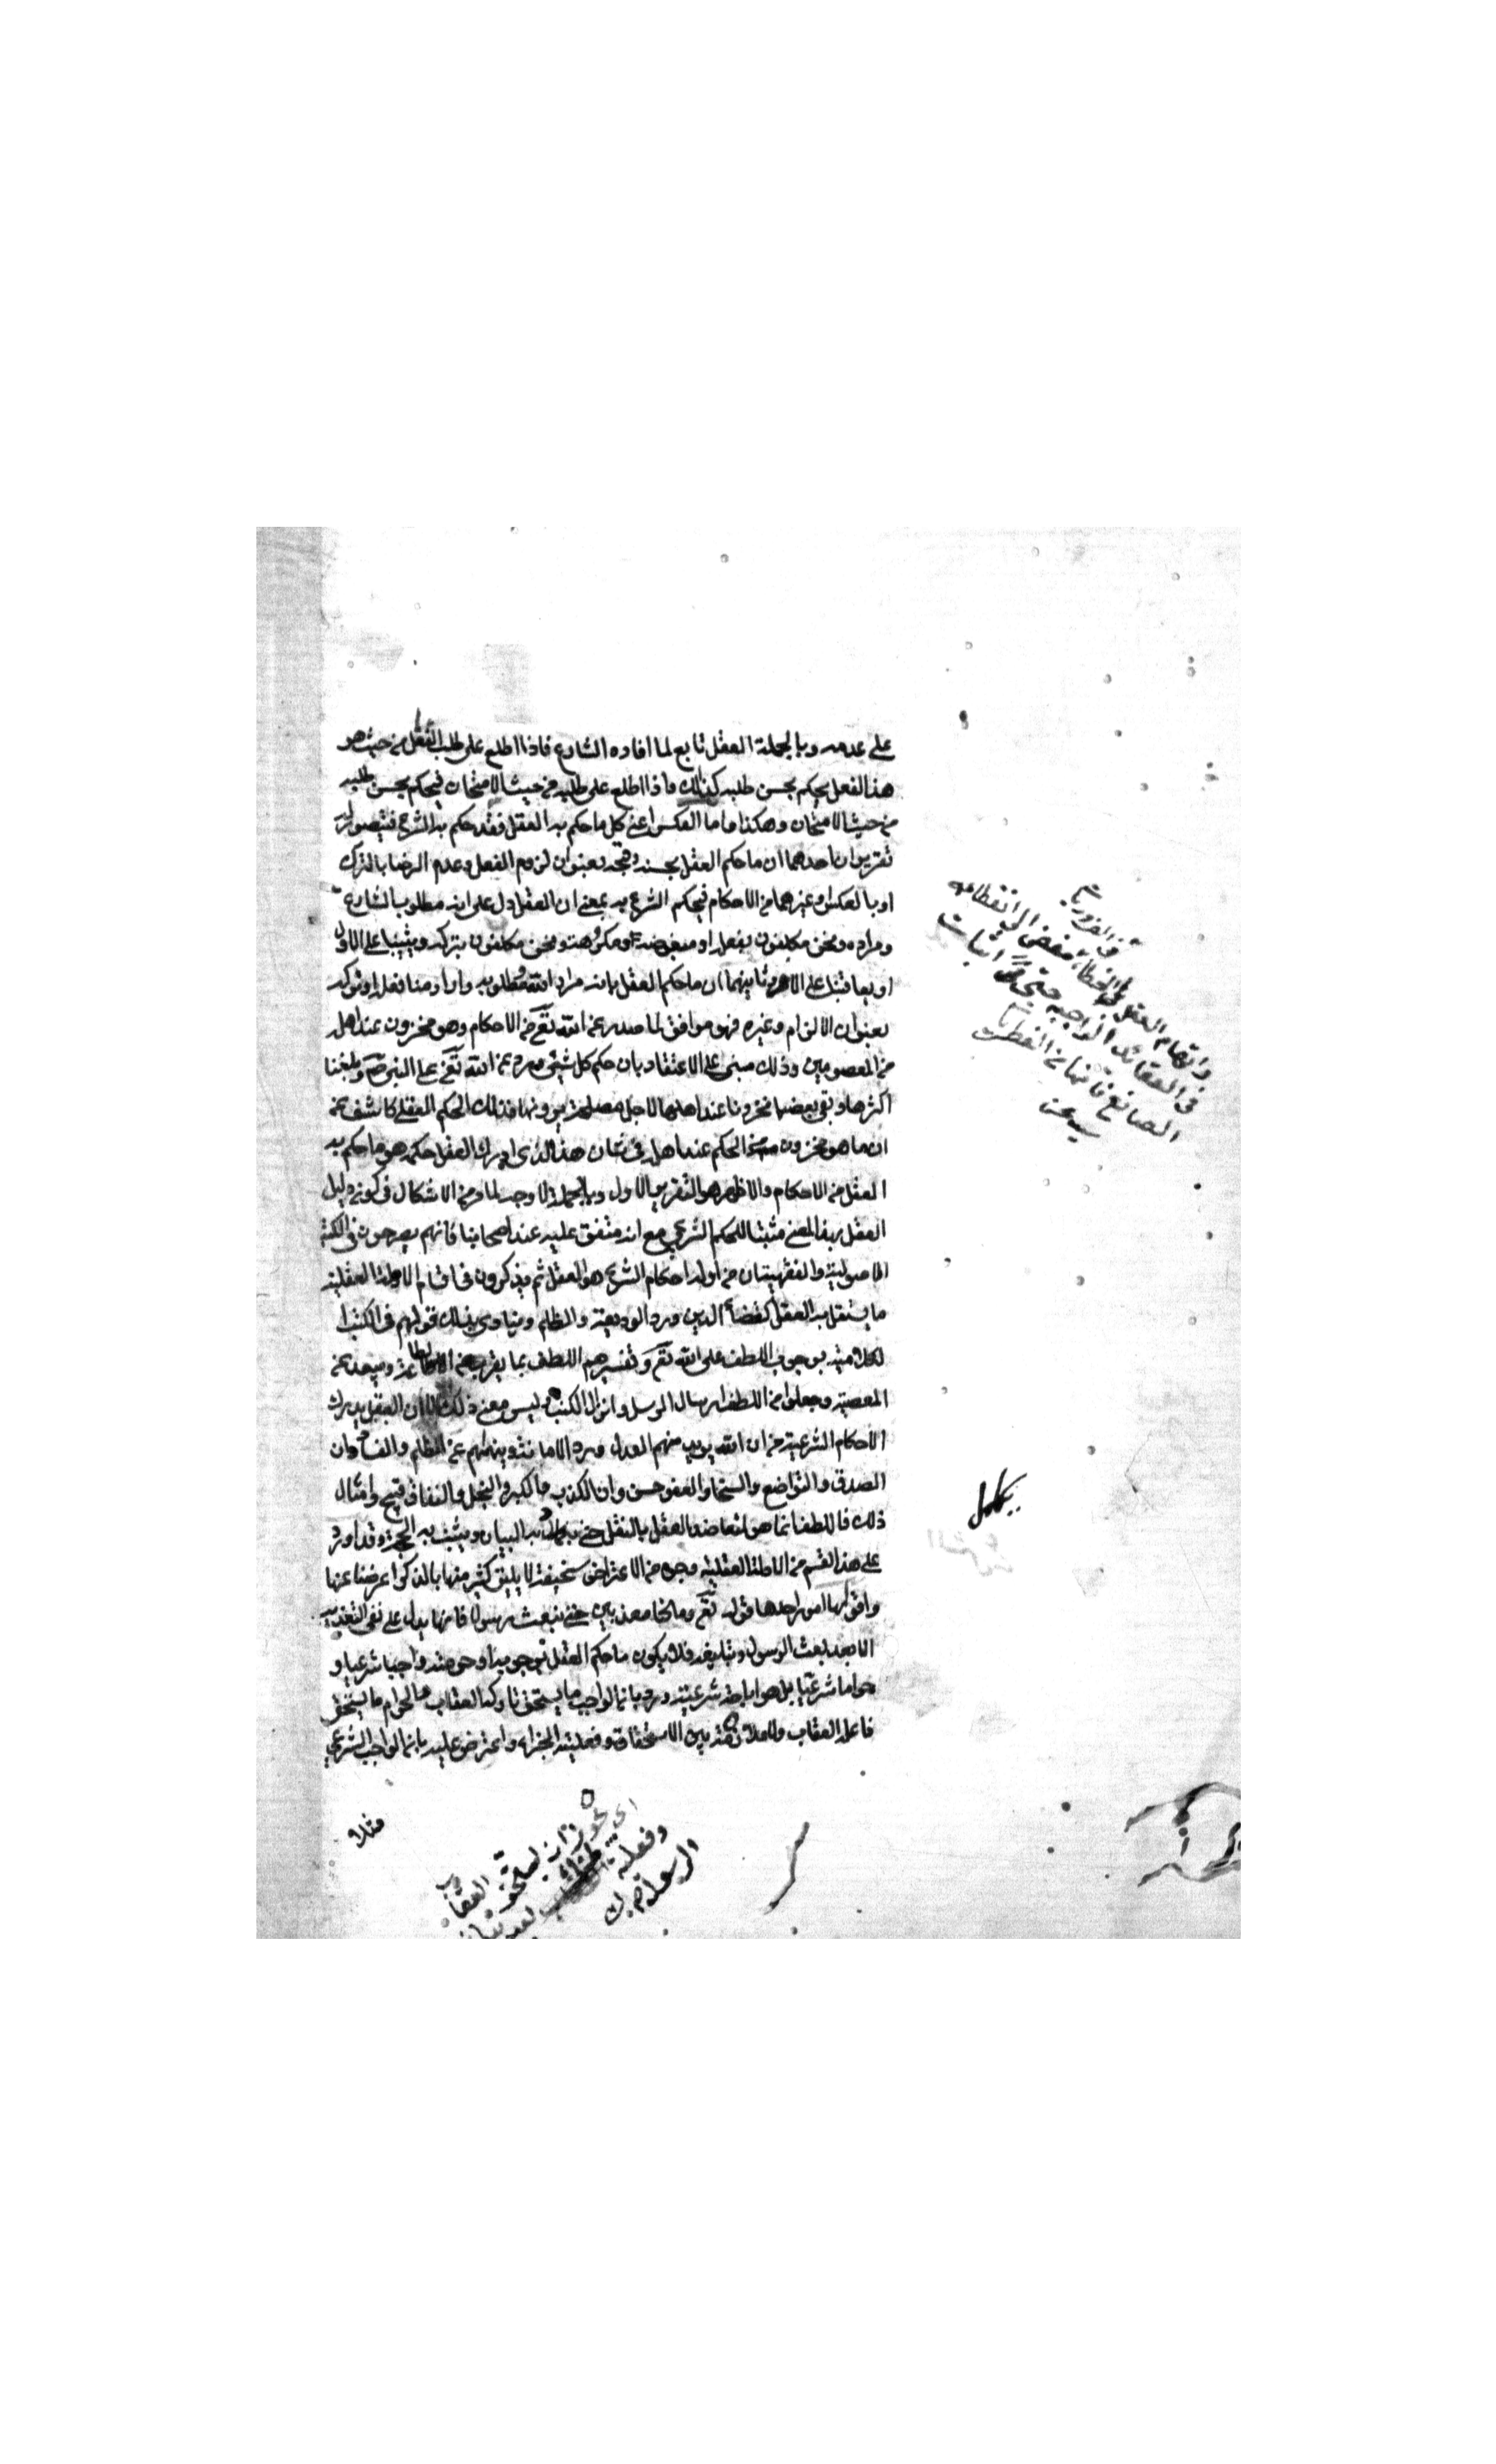 على عدمه وبالجملة العقل تابع لما افاده الشارع فاذا اطلع على طلب الفعل من حيث هو
هذا الفعل يحكم بحسن طلبه كذلك واذا اطلع على طلبه من حيث الامتحان فيحكم بحسن طلبه
من حيث الامتحان وهكذا واما العكس اعنى كل ما حكم به العقل فقد حكم به الشرع فيتصور له
تقريران احدهما ان ما حكم العقل بحسنه وقبحه بعنوان لزوم الفعل وعدم الرضا بالترك
او بالعكس او غيرهما من الاحكام فيحكم الشرع به بمعنى ان العقل دل على انه مطلوب الشارع
ومراده ونحن مكلفون بفعله او مبغوضه ومكروهه ونحن مكلفون بتركه ويثيبنا على الاول
او يعاقبنا على الاخر وثانيهما ان ما حكم العقل بانه مراد الله ومطلوبه واراد منا فعله او تركه
بعنوان الالزام وغيره فهو موافق لما صدر عن الله تع من الاحكام وهو مخزون عند اهله
من المعصومين وذلك مبنى على الاعتقاد بان حكم كل شئ ورد عن الله تع على النبى ص وبلغنا
اكثرها وبقى بعضها مخزونا عند اهلها لاجل مصلحة يرونها فذلك الحكم العقلى كاشف عن
ان ما هو مخزون من الحكم عند اهله فى شان هذا الذى ادرك العقل حكمه هو ما حكم به
العقل من الاحكام والاظهر هو التقرير الاول وبالجملة لا وجه لما ورد من الاشكال فى كونه دليل
العقل بهذا المعنى مثبتا للحكم الشرعى مع انه متفق عليه عند اصحابنا فانهم يصرحون فى الكتب
الاصولية والفقهية ان من ادلة احكام الشرع هو العقل ثم يذكرون فى اقسام الادلة العقلية
ما يستقل به العقل كقضاء الدين ورد الوديعة والظلم وينادى بذلك قولهم فى الكتب
الكلامية بوجوب اللطف على الله تع وتفسيرهم اللطف بما يقرب الى الطاعة ويبعد عن
المعصية وجعلوا من اللطف ارسال الرسل وانزال الكتب وليس معنى ذلك الا ان العقل يدرك
الاحكام الشرعية من ان الله يريد منهم العدل ورد الامانة وينهيهم عن الظلم والفساد وان
الصدق والتواضع والسخا والعفو حسن وان الكذب والكبر والبخل والنفاق قبيح وامثال
ذلك فاللطف انما هو لتعاضد العقل بالنقل حتى به البيان ويثبت به الحجة وقد اورد
على هذا القسم من الادلة العقلية وجوه من الاعتراض سخيفة لا يليق كثير منها بالذكر اعرضنا عنها
واقواها امور احدها قوله تع وما كنا معذبين حتى نبعث رسولا فانها يدل على نفى التعذيب
الا بعد بعث الرسول وتبليغه فلا يكون ما حكم العقل بوجوبه او حرمته واجبا شرعيا و
حراما شرعيا بل هو اباحة شرعية ورد بان الواجب ما يستحق تاركه العقاب والحرام ما يستحق
فاعله العقاب ولا ملازمة بين الاستحقاق وفعلية الجزاء واعترض عليه بان الواجب الشرعى
مثلا
واتهام العقل فى الخطاء مفض الى انقطاعه
فى العقائد الواجبة حتى اثبات
الصانع فانها من الفطريات